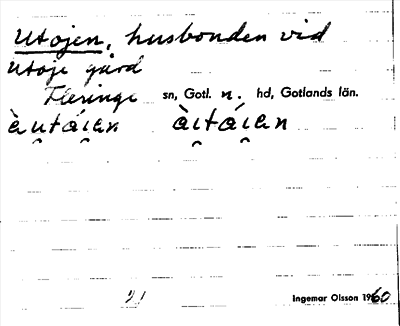 Utojen, husbonden vid
Utoje gård
Fleringe sn, Gotl. n. hd, Gotlands län.
àu̯tái̯en ài̯tái̯en
21 Ingemar Olsson 1960